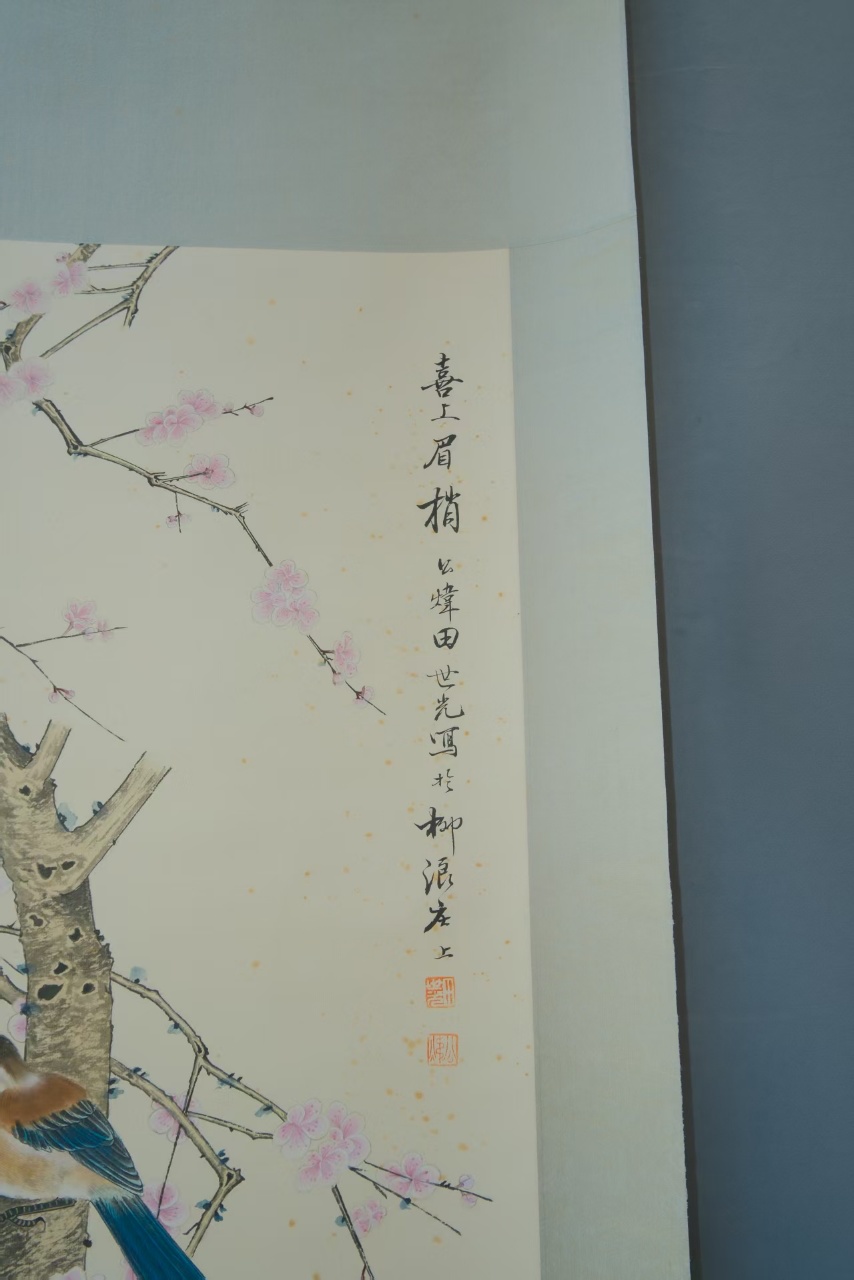 喜上眉梢 公煒田世光寫於柳浪庄上